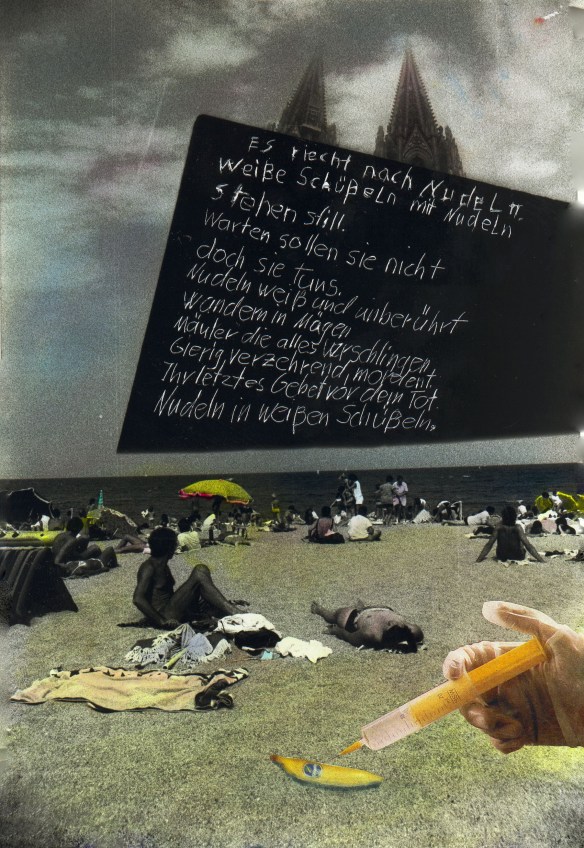 Es riecht nach Nudeln.
Weiße Schüßeln mit Nudeln
stehen still.
Warten sollen sie nicht
doch sie tuns.
Nudeln weiß und unberührt
wandern in Mägen
Mäuler die alles verschlingen.
Gierig, verzehrend, mordent.
Ihr letztes Gebet vor dem Tot
Nudeln in weißen Schüßeln.